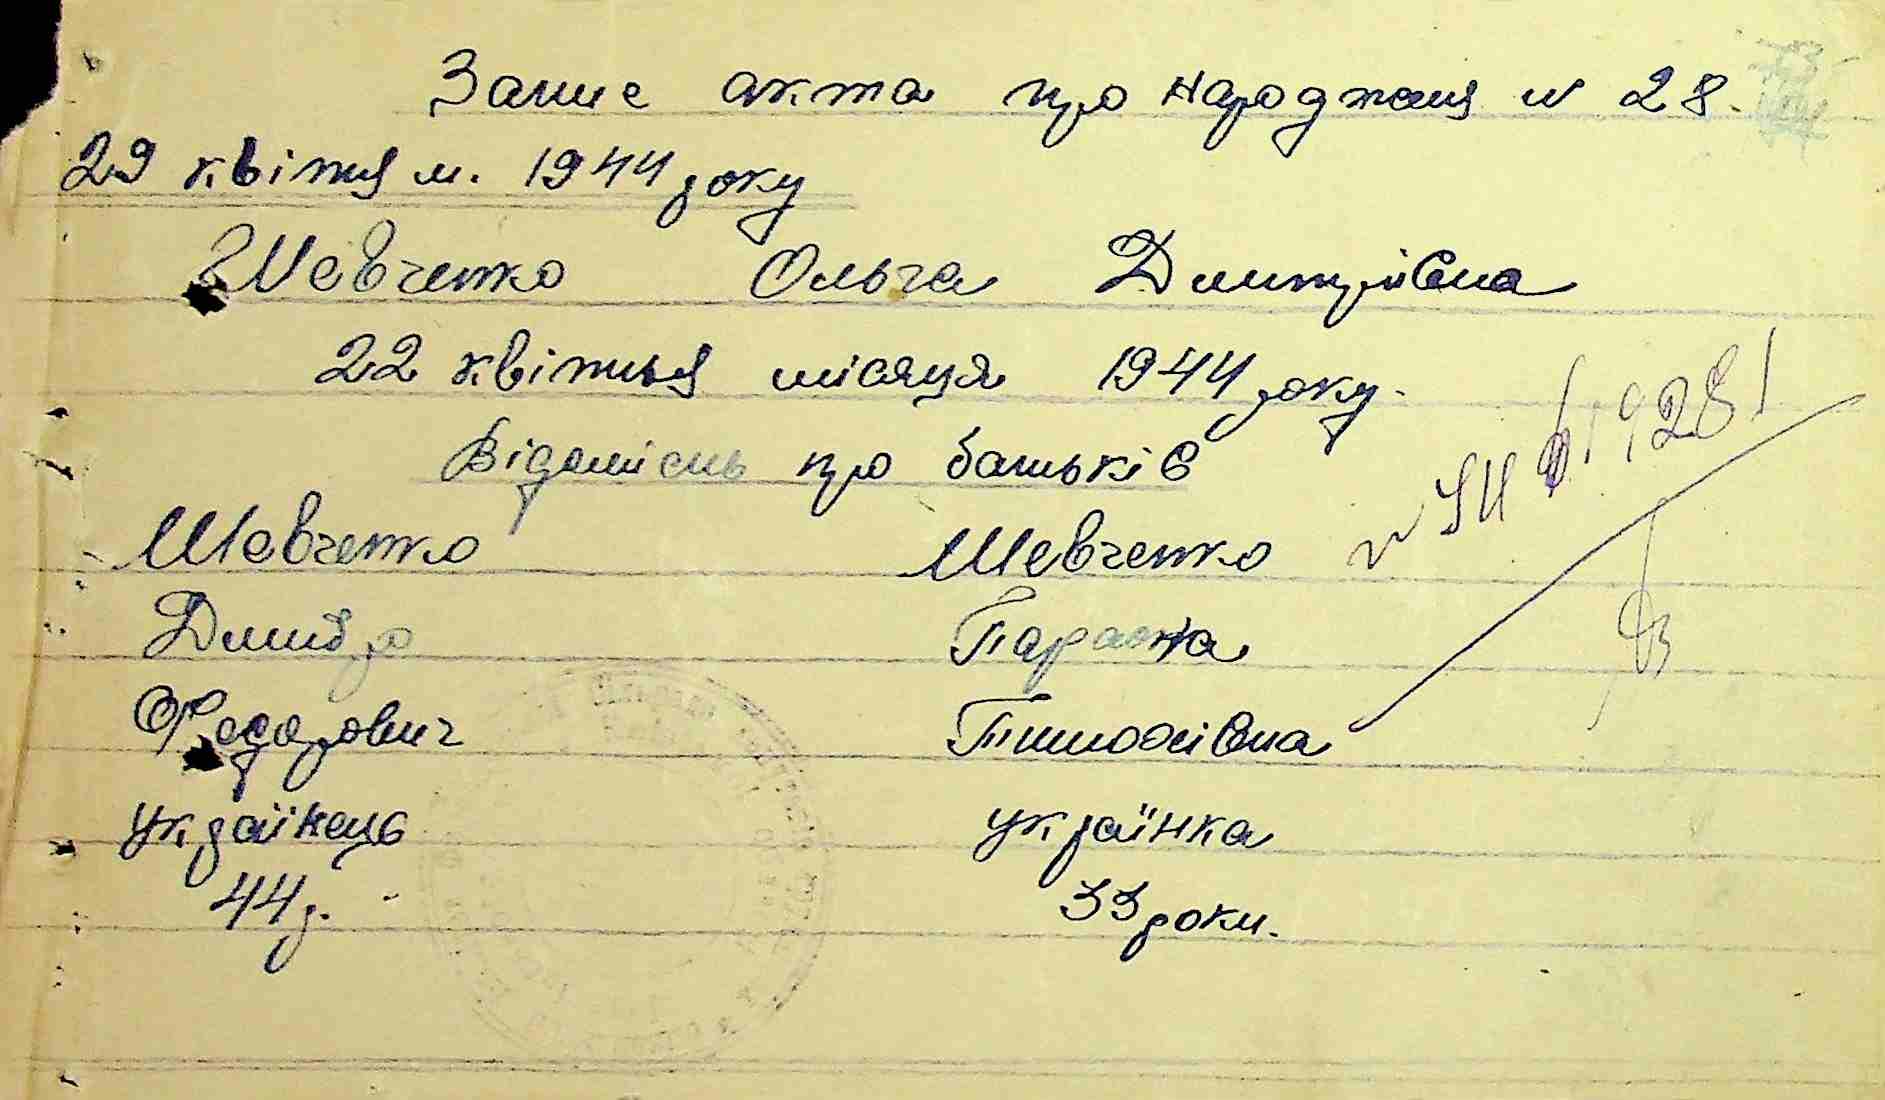 Запис акта про народження № 28.
29 квітня м. 1944 року
Шевченко Ольга Дмитрівна
22 квітня місяця 1944 року.
Відомість про батьків
Шевченко Шевченко
Дмитро Параска
Федорович Тимофіївна
українець українка
44 р. 33 роки.